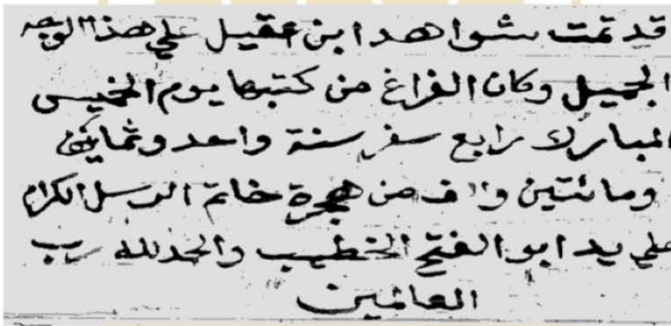 قد تمت شواهد ابن عقيل علي هذا الوجه
الجميل وكان الفراغ من كتبها يوم الخميس
المبارك رابع سفر سنة واحد وثمانين
ومائتين والف من هجرة خاتم الرسل الكرام
علي يد ابو الفتح الخطيب والحمد لله رب
العالمين